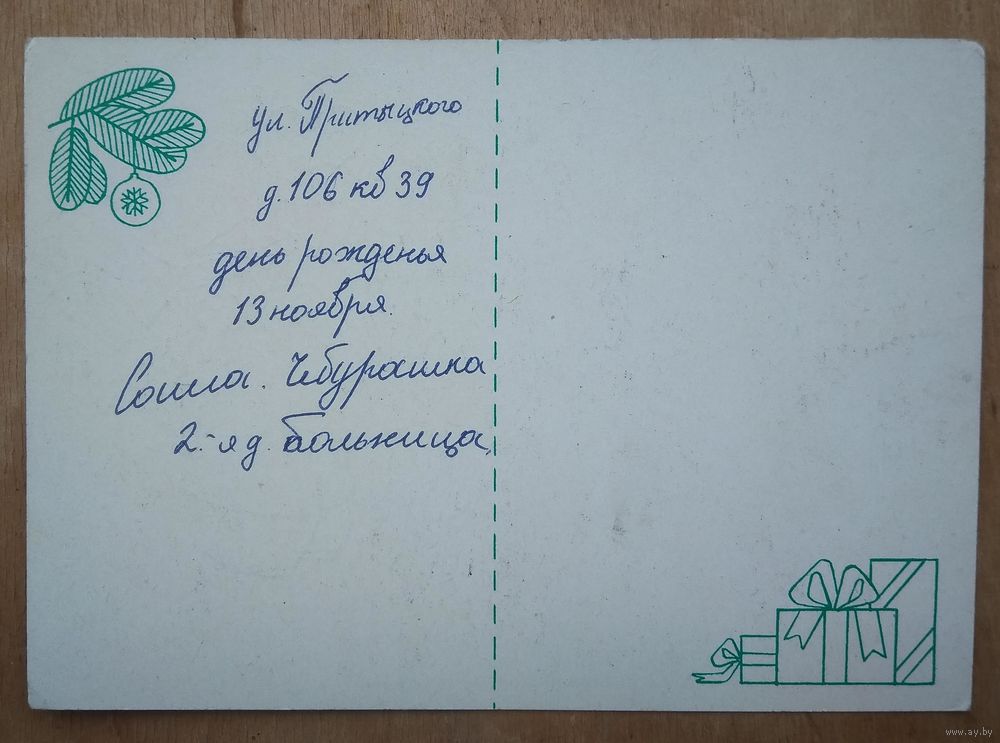 ул. Притыцкого
д. 106 кв 39
день рожденья
13 ноября.
Саша. Чебурашка
2-я д. больница.
www.ay.by